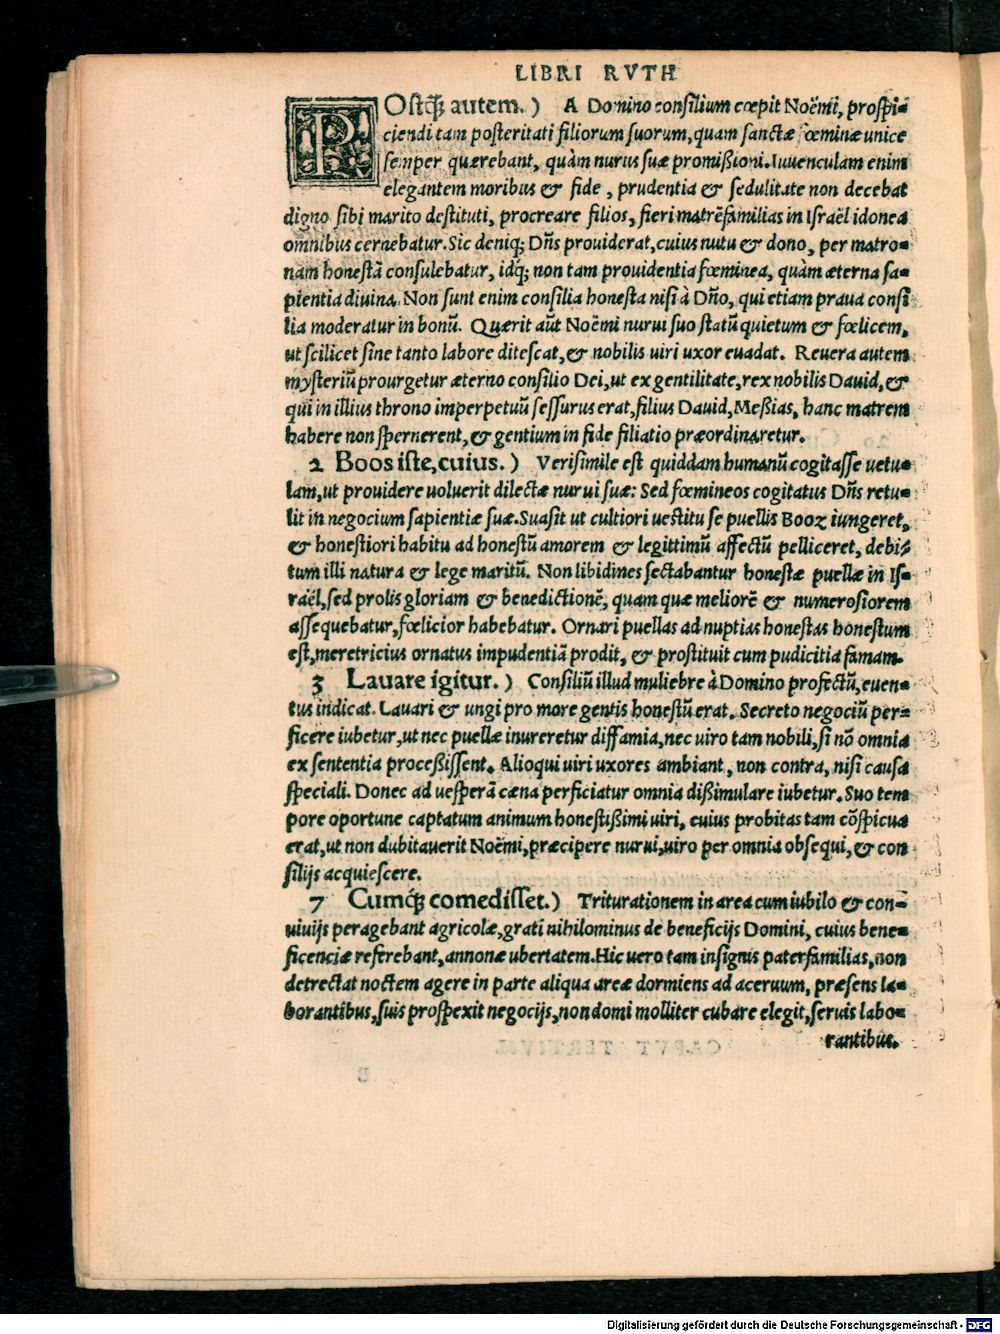 LIBRI RVTH
POstq̃; autem.) A Domino consilium cœpit Noëmi, prospi=
ciendi tam posteritati filiorum suorum, quam sanctæ fœminæ unice
semper quærebant, quàm nurus suæ promißioni. Iuuenculam enim
elegantem moribus & fide, prudentia & sedulitate non decebat
digno sibi marito destituti, procreare filios, fieri matrẽfamilias in Israël idonea
omnibus cernebatur. Sic deniq; Dñs prouiderat, cuius nutu & dono, per matro=
nam honestã consulebatur, idq́; non tam prouidentia fœminea, quàm æterna sa=
pientia diuina. Non sunt enim consilia honesta nisi à Dño, qui etiam praua consi
lia moderatur in bonũ. Quærit aũt Noëmi nurui suo statũ quietum & fœlicem,
ut scilicet sine tanto labore ditescat, & nobilis uiri uxor euadat. Reuera autem
mysteriũ prourgetur æterno consilio Dei, ut ex gentilitate, rex nobilis Dauid, &
qui in illius throno imperpetuũ sessurus erat, filius Dauid, Meßias, hanc matrem
habere non spernerent, & gentium in fide filiatio præordinaretur.
2 Boos iste, cuius.) Verisimile est quiddam humanũ cogitasse uetu=
lam, ut prouidere uoluerit dilectæ nurui suæ: Sed fœmineos cogitatus Dñs retu=
lit in negocium sapientiæ suæ. Suasit ut cultiori uestitu se puellis Booz iungeret,
& honestiori habitu ad honestũ amorem & legittimũ affectũ pelliceret, debi=
tum illi natura & lege maritũ. Non libidines sectabantur honestæ puellæ in Is=
raël, sed prolis gloriam & benedictionẽ, quam quæ meliorẽ & numerosiorem
assequebatur, fœlicior habebatur. Ornari puellas ad nuptias honestas honestum
est, meretricius ornatus impudentiã prodit, & prostituit cum pudicitia famam.
3 Lauare igitur.) Consiliũ illud muliebre à Domino profectũ, euen=
tus indicat. Lauari & ungi pro more gentis honestũ erat. Secreto negociũ per=
ficere iubetur, ut nec puellæ inureretur diffamia, nec uiro tam nobili, si nõ omnia
ex sententia proceßissent. Alioqui uiri uxores ambiant, non contra, nisi causa
speciali. Donec ad uesperã cæna perficiatur omnia dißimulare iubetur. Suo tem
pore oportune captatum animum honestißimi uiri, cuius probitas tam cõspicua
erat, ut non dubitauerit Noëmi, præcipere nurui, uiro per omnia obsequi, & con
silijs acquiescere.
7 Cumq́; comedisset.) Triturationem in area cum iubilo & con=
uiuijs peragebant agricolæ, grati nihilominus de beneficijs Domini, cuius bene=
ficenciæ referebant, annonæ ubertatem. Hic uero tam insignis paterfamilias, non
detrectat noctem agere in parte aliqua areæ dormiens ad aceruum, præsens la=
borantibus, suis prospexit negocijs, non domi molliter cubare elegit, seruis labo=
rantibus.
Digitalisierung gefördert durch die Deutsche Forschungsgemeinschaft - DFG